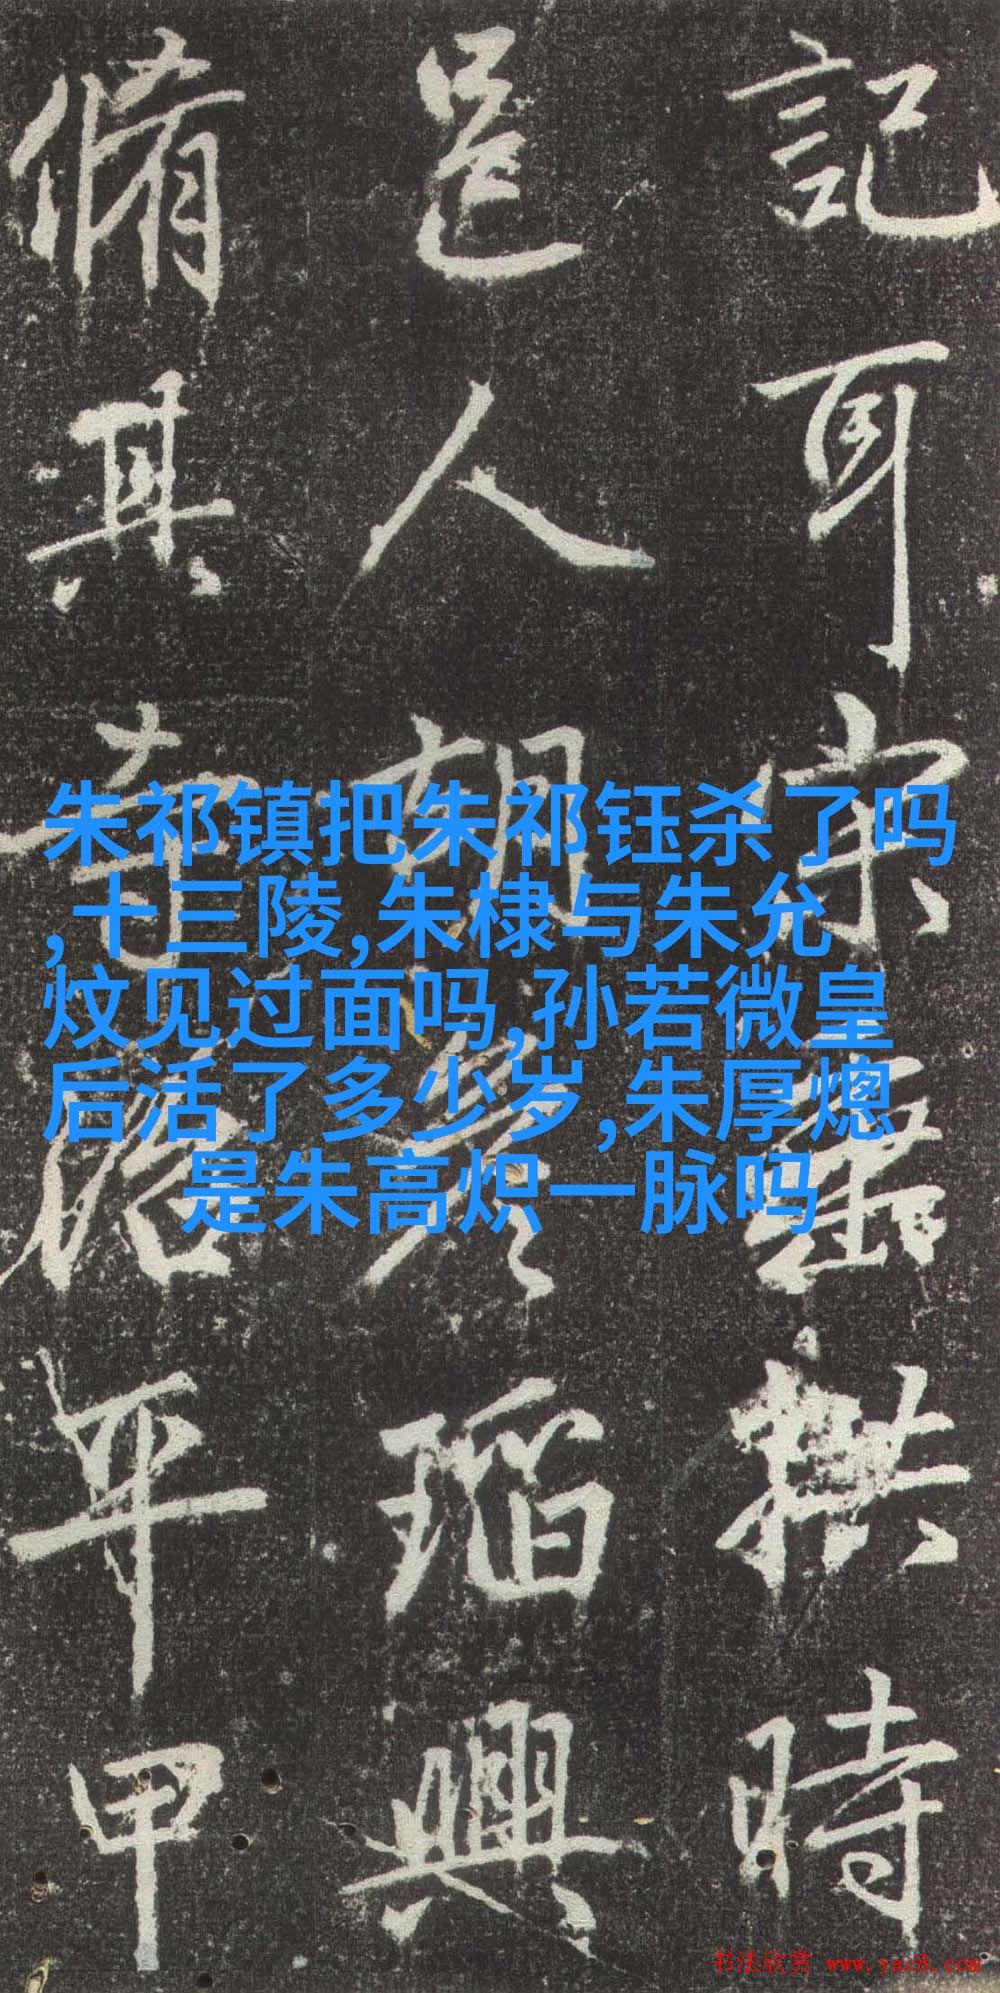 朱祁镇把朱祁钰杀了吗
,十三陵,朱棣与朱允
炆见过面吗,孙若微皇
后活了多少岁,朱厚熜
是朱高炽一脉吗
記耳宋垂拱時
邑人胡瑫興
脩其寺平甲
书法欣赏 www.yac8.com